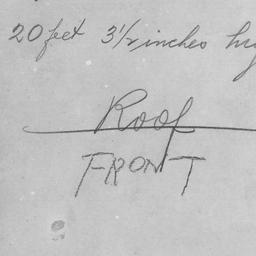 20 feet 3 1/2 inches
Roof
FRONT